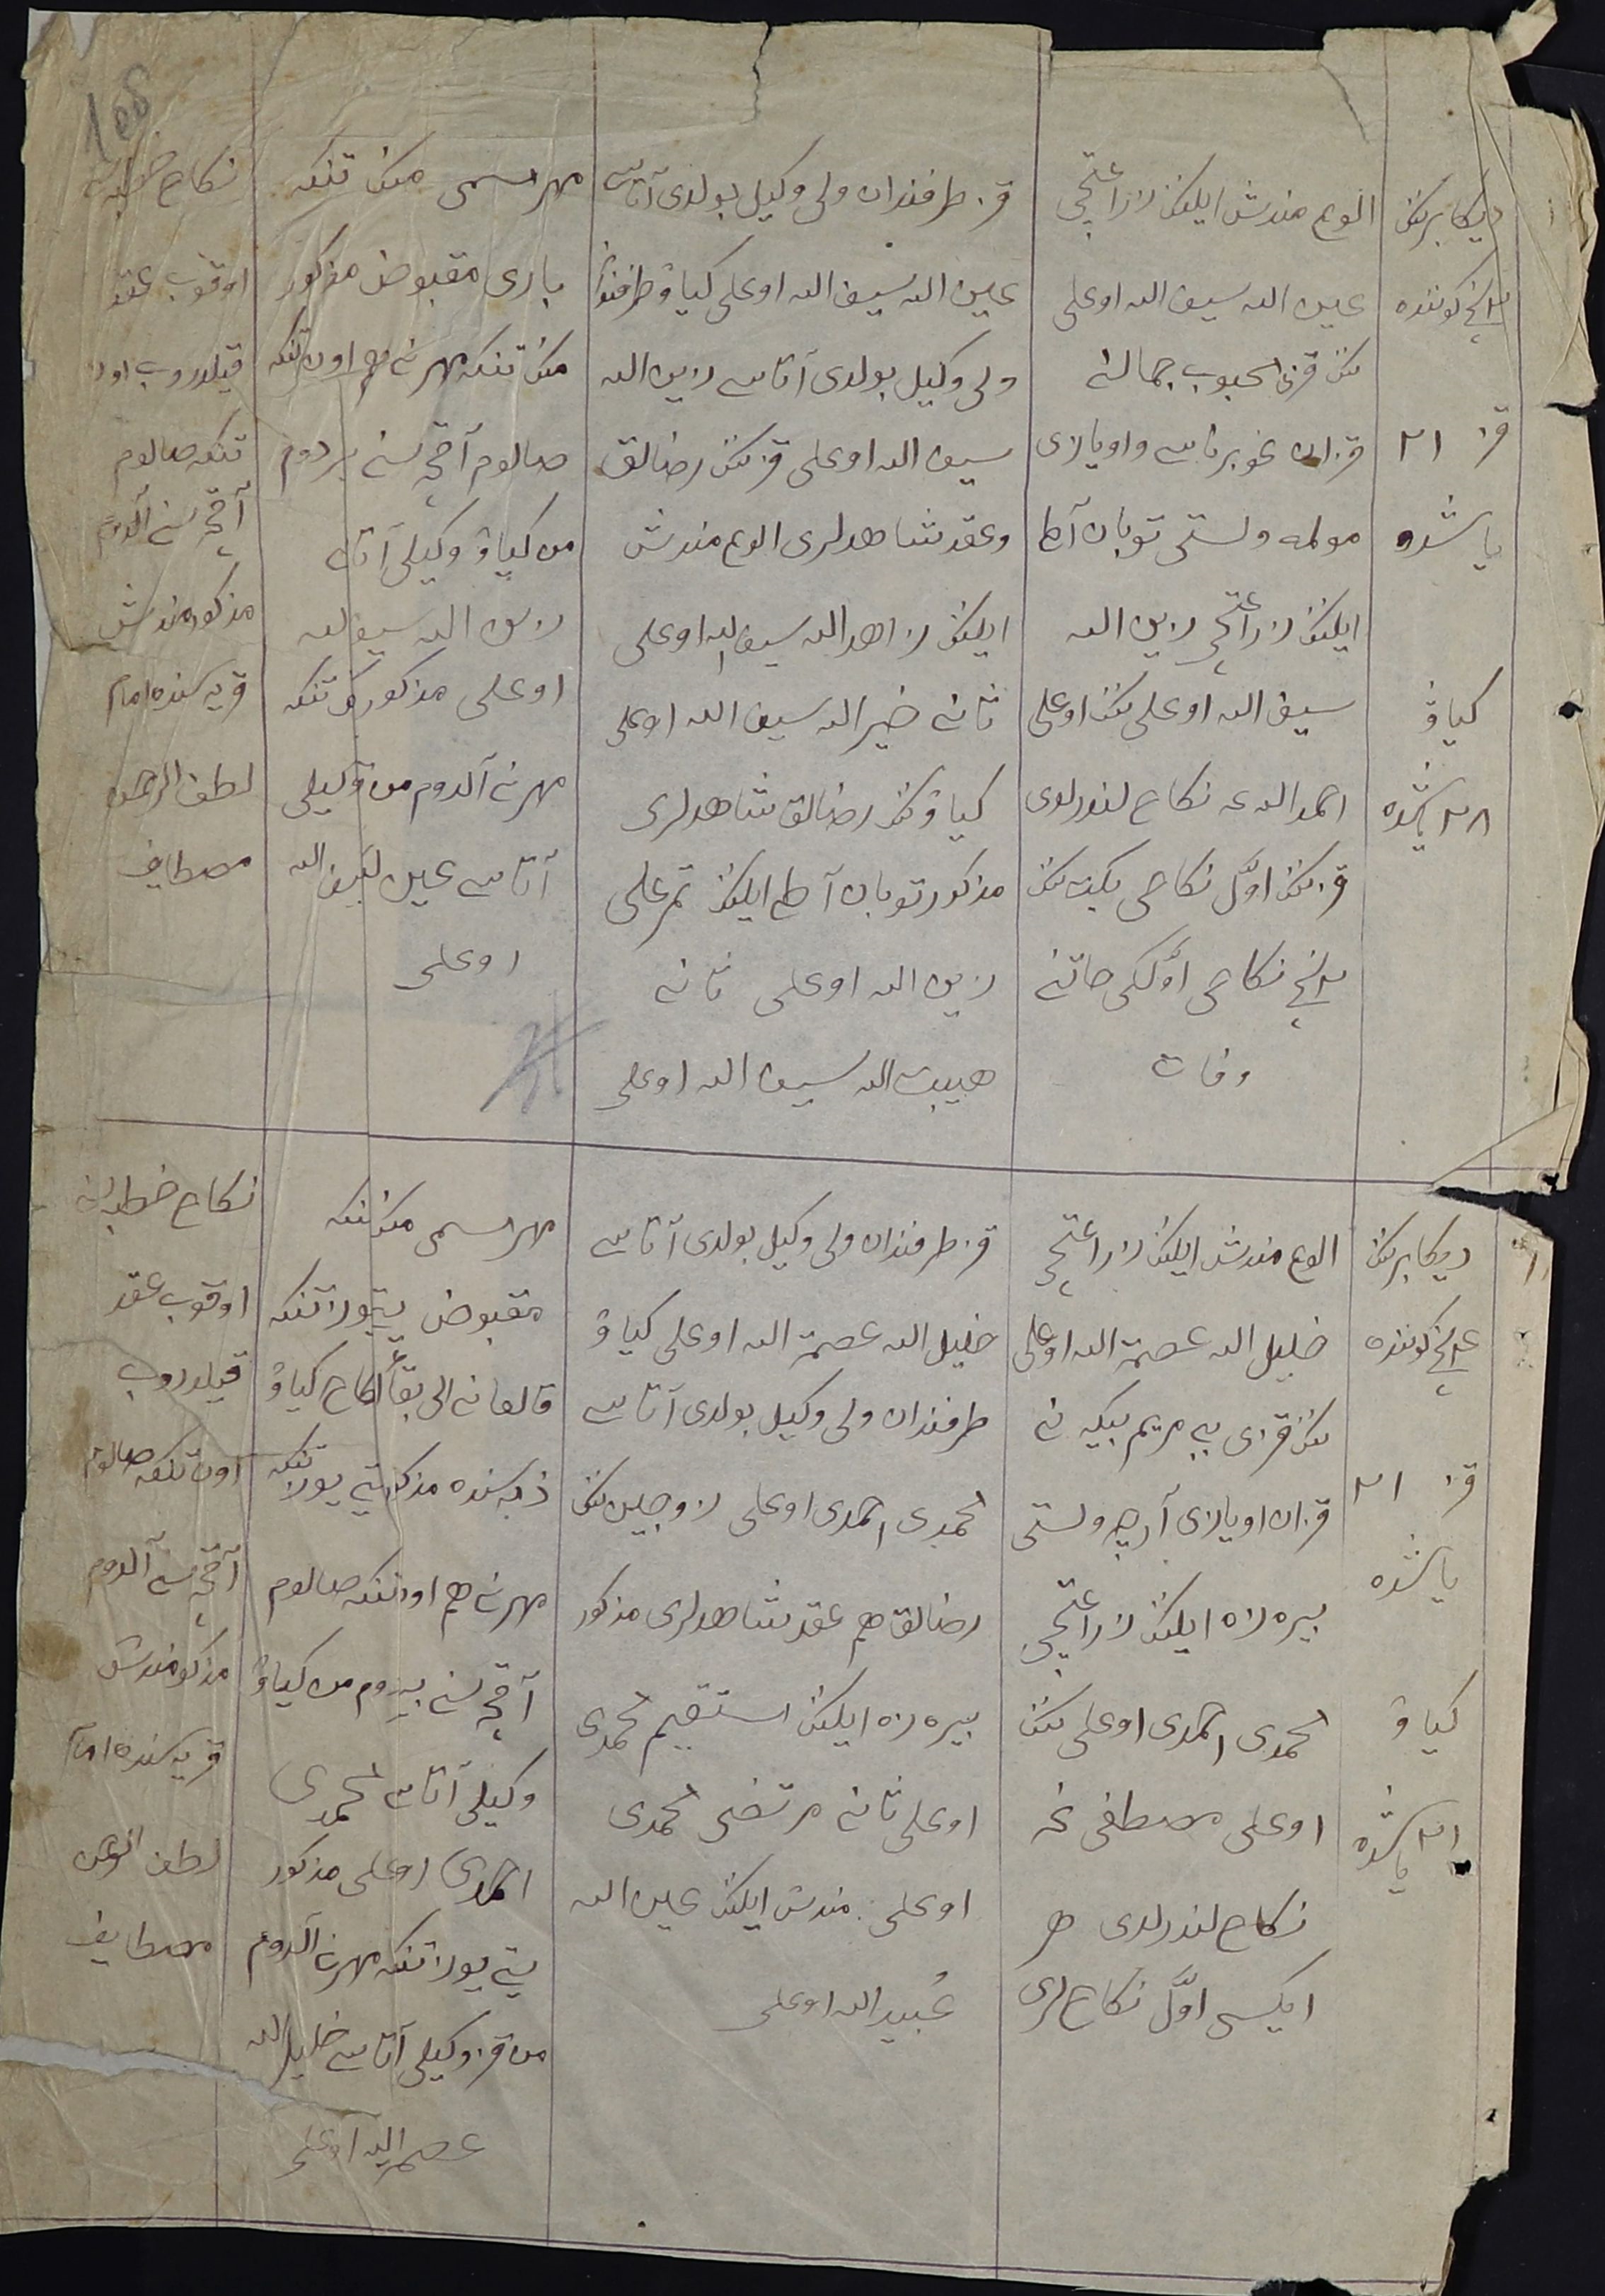 دیکابرننک
٣نچی کوننده
قز ٢١
یاشده
کیاو
٢٨ یاشده
الوغ مندش ایلیننک زراعتچی
عین الله سیف الله اوغلی
ننک قزی محبوب جمال
قزان غوبرناسی واویازی
مولمه ولستی توبان آطا
ایلیننک زراعتچی زین الله
سیف الله اوغلی ننک اوغلی
احمد الله غه نکاح لندرلدی
قزننک اول نکاحی یکیتننک
٢نچی نکاحی اولکی خاتنی
وفات
قز طرفندان ولی وکیل بولدی آتاسی
عین الله سیف الله اوغلی کیاو طرفندان
ولی وکیل بولدی آتاسی زین الله
سیف الله اوغلی قزننک رضالق
وعقد شاهدلری الوغ مندش
ایلیننک زاهد الله سیف الله اوغلی
ثانی خیر الله سیف الله اوغلی
کیاوننک رضالق شاهدلری
مذکور توبان آطا ایلیننک تمرعلی
زین الله اوغلی ثانی
هیبت الله سیف الله اوغلی
مهر مسمی منک تنکه
باری مقبوض مذکور
منک تنکه مهرنی هم اون تنکه
صالوم آقچه سنی بردوم
من کیاو وکیلی آتاسی
زین الله سیف الله
اوغلی مذکور منک تنکه
مهرنی آلدوم من قز وکیلی
آتاسی عین الله سیف الله
اوغلی
نکاح خطبه سی
اوقوب عقد
قیلدروب اون
تنکه صالوم
آقچه سنی آلدوم
مذکور مندش
قریه سنده امام
لطف الرحمن
مصطایف
دیکابرننک
٤نچی کوننده
قز ٢١
یاشده
کیاو
٢١ یاشده
الوغ مندش ایلیننک زراعتچی
خلیل الله عصمة الله اوغلی
ننک قزی بی بی مریم بیکه نی
قزان اویازی آرچه ولستی
بیره زه ایلیننک زراعتچی
محمدی احمدی اوغلی ننک
اوغلی مصطفی غه
نکاح لندرلدی هر
ایکیسی اول نکاح لری
قز طرفندان ولی وکیل بولدی آتاسی
خلیل الله عصمة الله اوغلی کیاو
طرفندان ولی وکیل بولدی آتاسی
محمدی احمدی اوغلی زوجین ننک
رضالق هم عقد شاهدلری مذکور
بیره زه ایلیننک مستقیم محمدی
اوغلی ثانی مرتضی محمدی
اوغلی. مندش ایلیننک عین الله
عبید الله اوغلی
مهر مسمی منک تنکه
مقبوض یتی یوز تنکه
قالغانی الی بقاء النکاح کیاو
ذمه سنده مذکور یتی یوز تنکه
مهرنی هم اون تنکه صالوم
آقچه سنی بیردوم من کیاو
وکیلی آتاسی محمدی
احمدی اوغلی مذکور
یتی یوز تنکه مهرنی آلدوم
من قز وکیلی آتاسی خلیل الله
عصمة الله اوغلی
نکاح خطبه سی
اوقوب عقد
قیلدروب
اون تنکه صالوم
آقچه سنی آلدوم
مذکور مندش
قریه سنده امام
لطف الرحمن
مصطایف